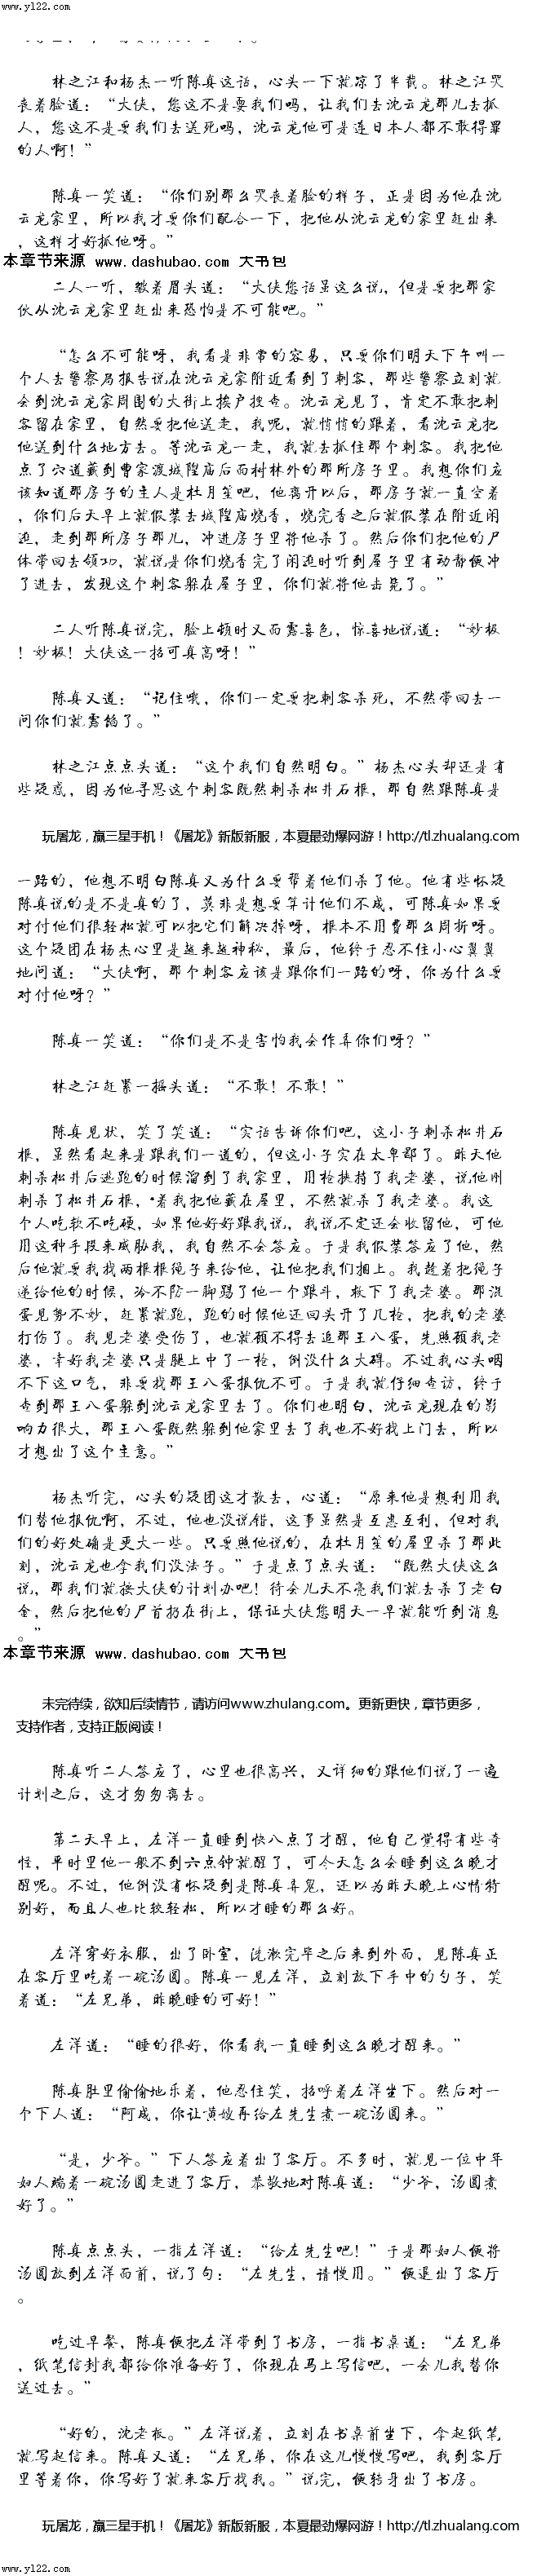 www.yl22.com
林之江和杨杰一听陈真这话，心头一下就凉了半截。林之江哭
丧着脸道：“大侠，您这不是耍我们吗，让我们去沈云龙那儿去抓
人，您这不是要我们去送死吗，沈云龙他可是连日本人都不敢得罪
的人啊！”
陈真一笑道：“你们别那么哭丧着脸的样子，正是因为他在沈
云龙家里，所以我才要你们配合一下，把他从沈云龙的家里赶出来
，这样才好抓他呀。”
本章节来源 www.dashubao.com 大书包
二人一听，皱着眉头道：“大侠您话虽这么说，但是要把那家
伙从沈云龙家里赶出来恐怕是不可能吧。”
“怎么不可能呀，我看是非常的容易，只要你们明天下午叫一
个人去警察局报告说在沈云龙家附近看到了刺客，那些警察立刻就
会到沈云龙家周围的大街上挨户搜查。沈云龙见了，肯定不敢把刺
客留在家里，自然要把他送走，我呢，就悄悄的跟着，看沈云龙把
他送到什么地方去。等沈云龙一走，我就去抓住那个刺客。我把他
点了穴道藏到曹家渡城隍庙后面树林外的那所房子里。我想你们应
该知道那房子的主人是杜月笙吧，他离开以后，那房子就一直空着
，你们后天早上就假装去城隍庙烧香，烧完香之后就假装在附近闲
逛，走到那所房子那儿，冲进房子里将他杀了。然后你们把他的尸
体带回去领功，就说是你们烧香完了闲逛时听到屋子里有动静便冲
了进去，发现这个刺客躲在屋子里，你们就将他击毙了。”
二人听陈真说完，脸上顿时又面露喜色，惊喜地说道：“妙极
！妙极！大侠这一招可真高呀！”
陈真又道：“记住哦，你们一定要把刺客杀死，不然带回去一
问你们就露馅了。”
林之江点点头道：“这个我们自然明白。”杨杰心头却还是有
些疑惑，因为他寻思这个刺客既然刺杀松井石根，那自然跟陈真是
玩屠龙，赢三星手机！《屠龙》新版新服，本夏最劲爆网游！http://tl.zhualang.com
一路的，他想不明白陈真又为什么要帮着他们杀了他。他有些怀疑
陈真说的是不是真的了，莫非是想要算计他们不成，可陈真如果要
对付他们很轻松就可以把它们解决掉呀，根本不用费那么周折呀。
这个疑团在杨杰心里是越来越神秘，最后，他终于忍不住小心翼翼
地问道：“大侠啊，那个刺客应该是跟你们一路的呀，你为什么要
对付他呀？”
陈真一笑道：“你们是不是害怕我会作弄你们呀？”
林之江赶紧一摇头道：“不敢！不敢！”
陈真见状，笑了笑道：“实话告诉你们吧，这小子刺杀松井石
根，虽然看起来是跟我们一道的，但这小子实在太卑鄙了。昨天他
刺杀松井后逃跑的时候溜到了我家里，用枪挟持了我老婆，说他刚
刺杀了松井石根，着我把他藏在屋里，不然就杀了我老婆。我这
个人吃软不吃硬，如果他好好跟我说，我说不定还会收留他，可他
用这种手段来威胁我，我自然不会答应。于是我假装答应了他，然
后他就要我找两根根绳子来给他，让他把我们捆上。我趁着把绳子
递给他的时候，冷不防一脚踢了他一个跟斗，救下了我老婆。那混
蛋见势不妙，赶紧就跑，跑的时候他还回头开了几枪，把我的老婆
打伤了。我见老婆受伤了，也就顾不得去追那王八蛋，先照顾我老
婆，幸好我老婆只是腿上中了一枪，倒没什么大碍。不过我心头咽
不下这口气，非要找那王八蛋报仇不可。于是我就仔细查访，终于
查到那王八蛋躲到沈云龙家里去了。你们也明白，沈云龙现在的影
响力很大，那王八蛋既然躲到他家里去了我也不好找上门去，所以
才想出了这个主意。”
杨杰听完，心头的疑团这才散去，心道：“原来他是想利用我
们替他报仇啊，不过，他也没说错，这事虽然是互惠互利，但对我
们的好处确是更大一些。只要照他说的，在杜月笙的屋里杀了那此
刻，沈云龙也拿我们没法子。”于是点了点头道：“既然大侠这么
说，那我们就按大侠的计划办吧！待会儿天不亮我们就去杀了老白
金，然后把他的尸首扔在街上，保证大侠您明天一早就能听到消息
。”
本章节来源 www.dashubao.com 大书包
未完待续，欲知后续情节，请访问www.zhulang.com。更新更快，章节更多，
支持作者，支持正版阅读！
陈真听二人答应了，心里也很高兴，又详细的跟他们说了一遍
计划之后，这才匆匆离去。
第二天早上，左洋一直睡到快八点了才醒，他自己觉得有些奇
怪，平时里他一般不到六点钟就醒了，可今天怎么会睡到这么晚才
醒呢。不过，他倒没有怀疑到是陈真弄鬼，还以为昨天晚上心情特
别好，而且人也比较轻松，所以才睡的那么好。
左洋穿好衣服，出了卧室，洗漱完毕之后来到外面，见陈真正
在客厅里吃着一碗汤圆。陈真一见左洋，立刻放下手中的勺子，笑
着道：“左兄弟，昨晚睡的可好！”
左洋道：“睡的很好，你看我一直睡到这么晚才醒来。”
陈真肚里偷偷地乐着，他忍住笑，招呼着左洋坐下。然后对一
个下人道：“阿成，你让黄嫂再给左先生煮一碗汤圆来。”
“是，少爷。”下人答应着出了客厅。不多时，就见一位中年
妇人端着一碗汤圆走进了客厅，恭敬地对陈真道：“少爷，汤圆煮
好了。”
陈真点点头，一指左洋道：“给左先生吧！”于是那妇人便将
汤圆放到左洋面前，说了句：“左先生，请慢用。”便退出了客厅
。
吃过早餐，陈真便把左洋带到了书房，一指书桌道：“左兄弟
，纸笔信封我都给你准备好了，你现在马上写信吧，一会儿我替你
送过去。”
“好的，沈老板。”左洋说着，立刻在书桌前坐下，拿起纸笔
就写起信来。陈真又道：“左兄弟，你在这儿慢慢写吧，我到客厅
里等着你，你写好了就来客厅找我。”说完，便转身出了书房。
玩屠龙，赢三星手机！《屠龙》新版新服，本夏最劲爆网游！http://tl.zhualang.com
www.yl22.com